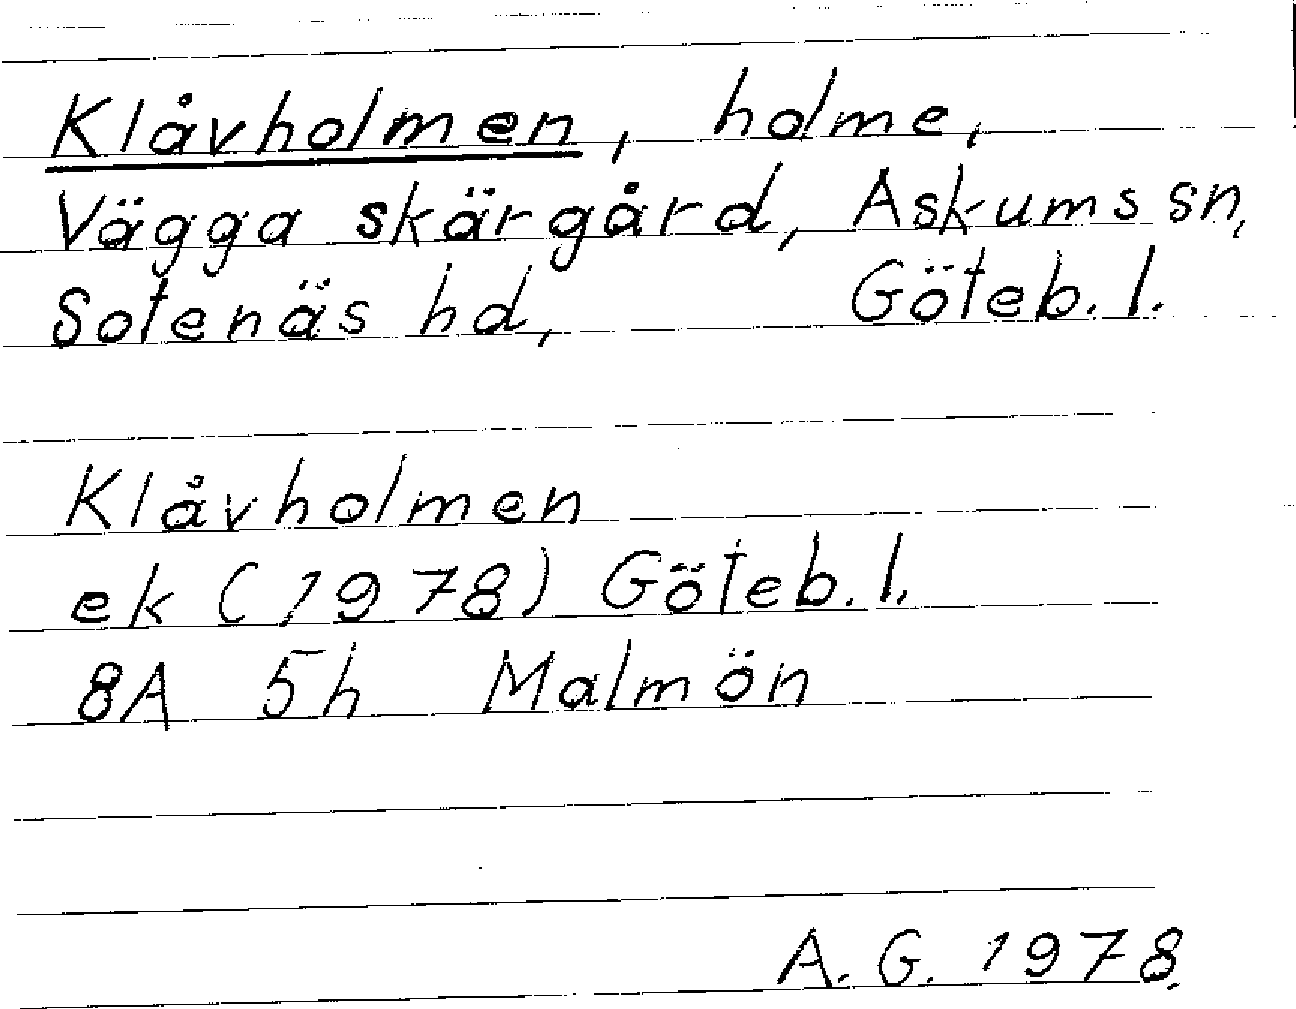 Klåvholmen, holme,
Vägga skärgård, Askums sn,
Sotenäs hd, Göteb. l.
Klåvholmen
ek (1978) Göteb. l.
8A 5h Malmön
A. G. 1978.